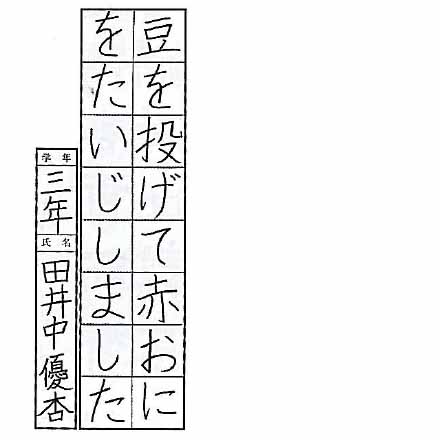 豆を投げて赤おに
をたいじしました
学年
三年
氏名
田井中優杏